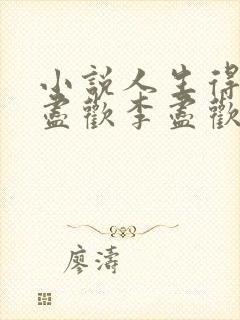 小說人生得
盡歡李盡歡
廖濤